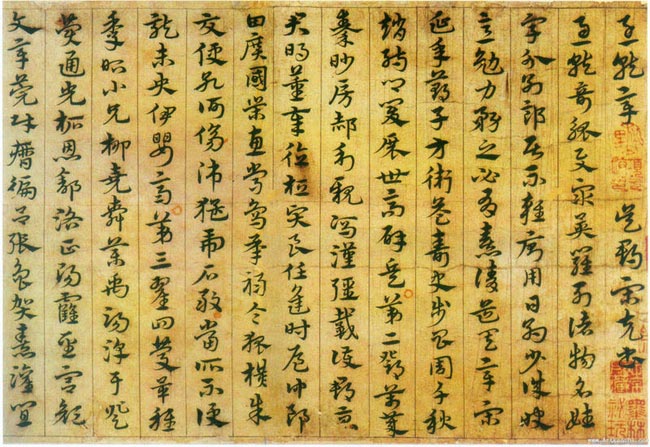 急就章 吳郡宋克書
急就奇觚與眾異羅列諸物名姓
字分別部居不雜廁用日約少誠快
意勉力務之必有憙請道其章宋
延年鄭子方衛益壽史步昌周千秋
趙孺卿爰展世高辟兵第二鄧萬歲
秦眇房郝利親馮漢彊戴護郡景
君明董奉德桓賢良任逢時侯仲郎
田廣國榮惠常烏承祿令狐橫朱
交便孔何傷師猛虎石敢當所不侵
龍未央伊嬰齊第三翟回慶畢稚
季昭小兄柳堯舜藥禹湯淳于登
費通光柘恩舒路正陽霍聖宮顏
文章莞財歷編呂張魚賀憙灌宜